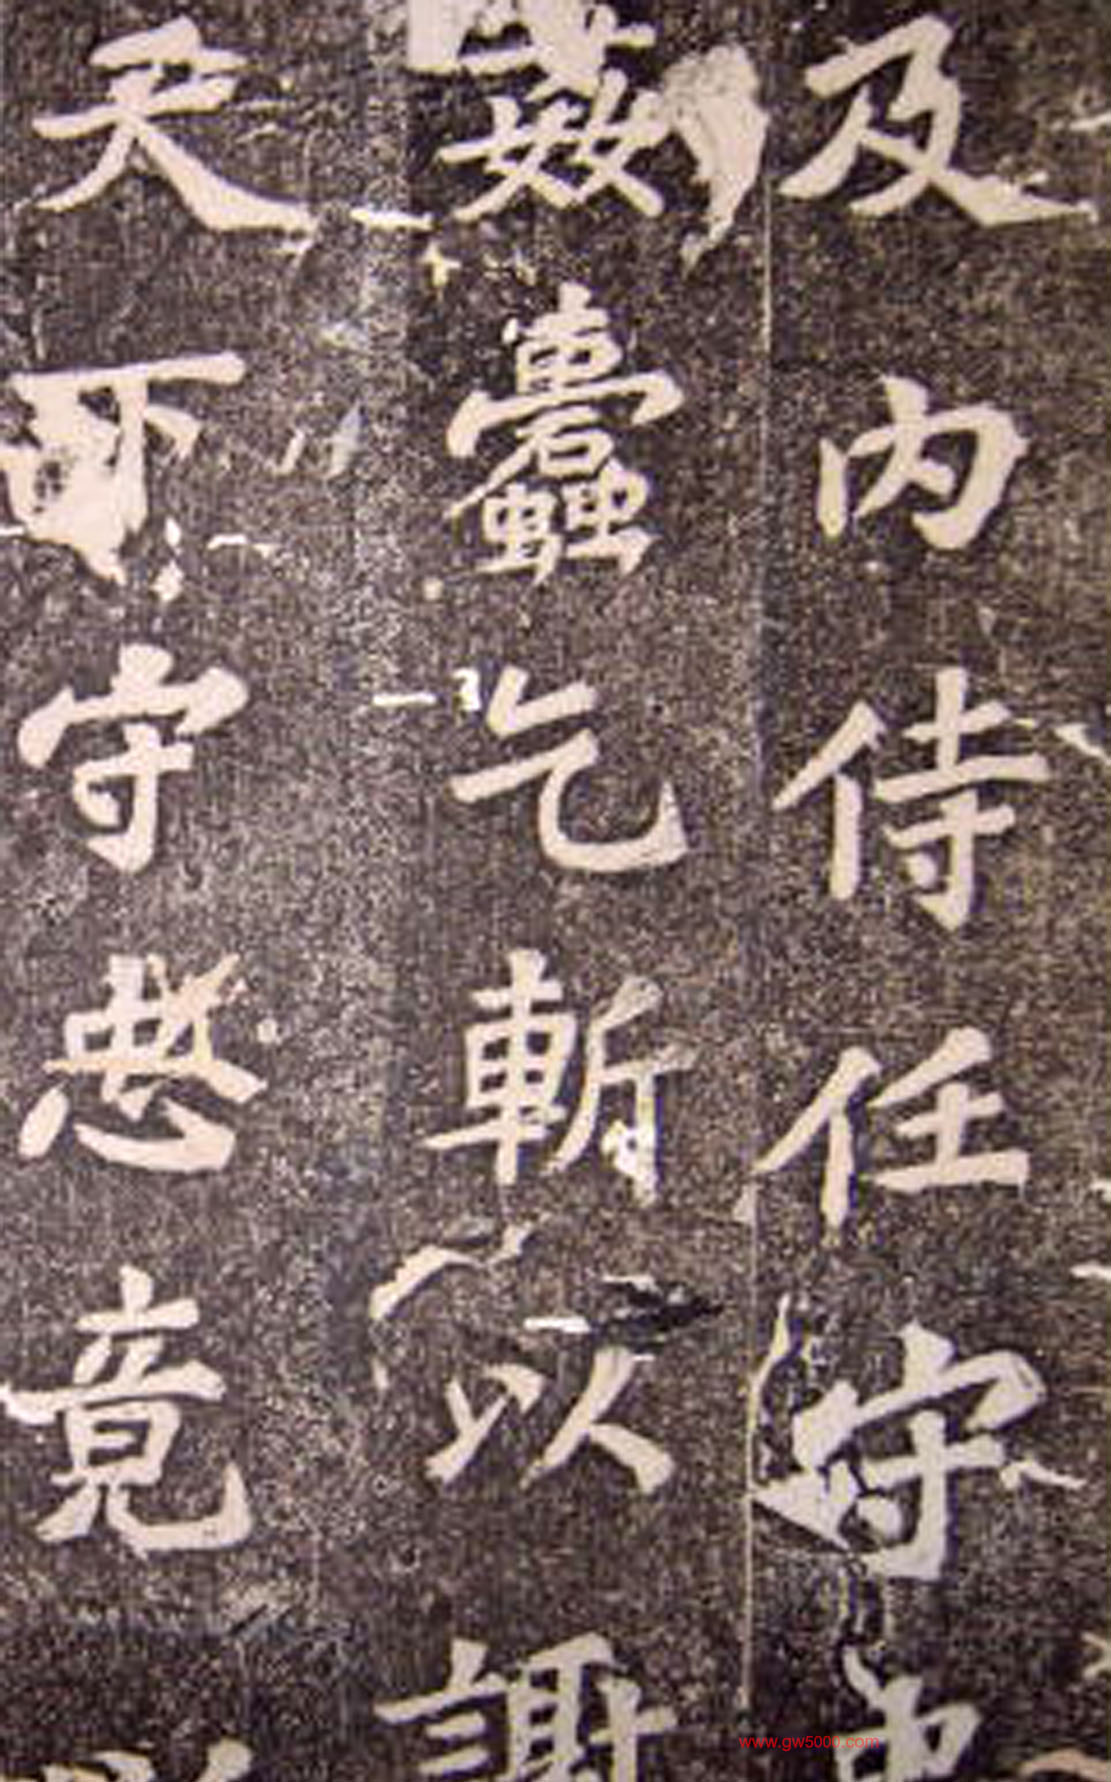 及內侍任守忠
姦蠹乞斬以謝
天下守忠竟
www.gw5000.com